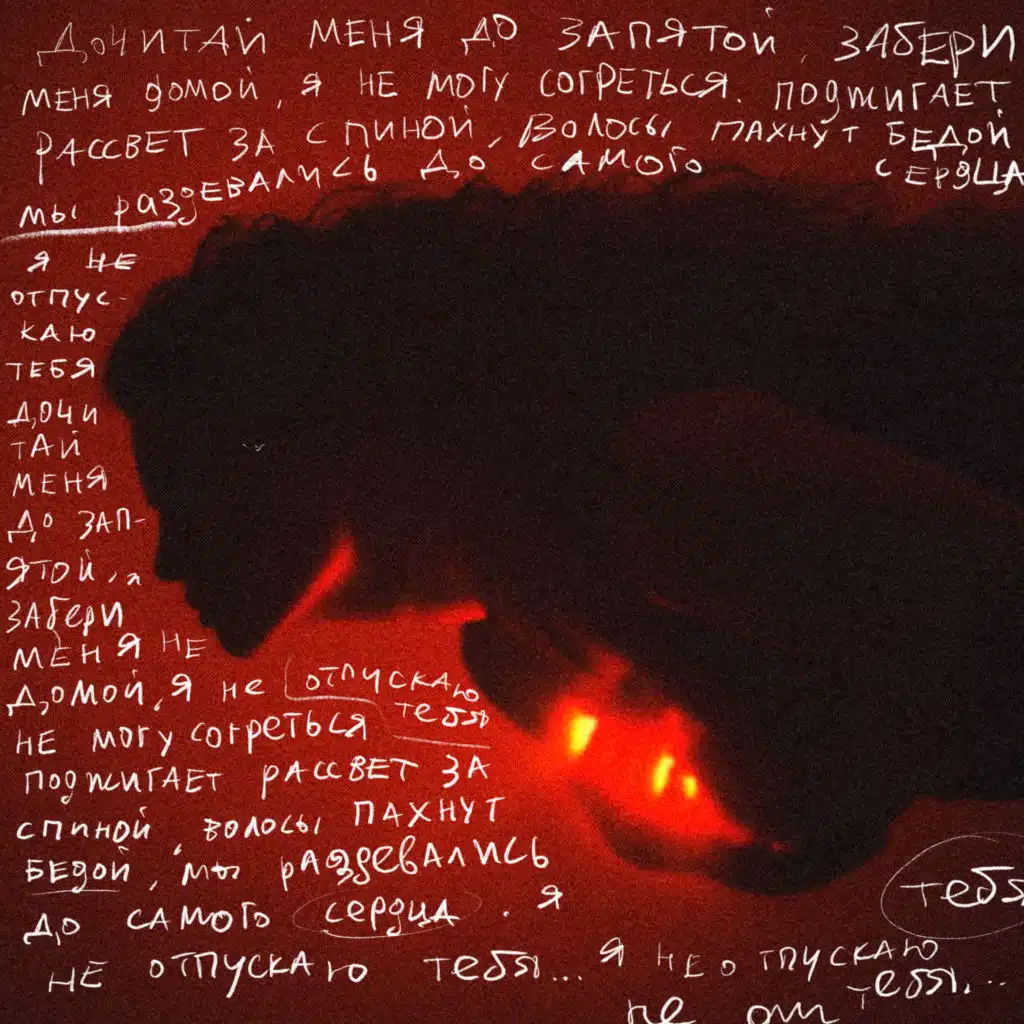 ДОЧИТАЙ МЕНЯ ДО ЗАПЯТОЙ, ЗАБЕРИ
МЕНЯ ДОМОЙ, Я НЕ МОГУ СОГРЕТЬСЯ. ПОДЖИГАЕТ
РАССВЕТ ЗА СПИНОЙ, ВОЛОСЫ ПАХНУТ БЕДОЙ
МЫ РАЗДЕВАЛИСЬ ДО САМОГО СЕРДЦА
Я НЕ
ОТПУС-
КАЮ
ТЕБЯ
ДОЧИ
ТАЙ
МЕНЯ
ДО ЗАП-
ЯТОЙ, я
ЗАБЕРИ
МЕНЯ НЕ
ДОМОЙ, Я НЕ ОТПУСКАЮ
ТЕБЯ
НЕ МОГУ СОГРЕТЬСЯ
ПОДЖИГАЕТ РАССВЕТ ЗА
СПИНОЙ, ВОЛОСЫ ПАХНУТ
БЕДОЙ, МЫ РАЗДЕВАЛИСЬ
ДО САМОГО СЕРДЦА. Я
НЕ ОТПУСКАЮ ТЕБЯ...
тебя
Я НЕ ОТПУСКАЮ
ТЕБЯ...
не от